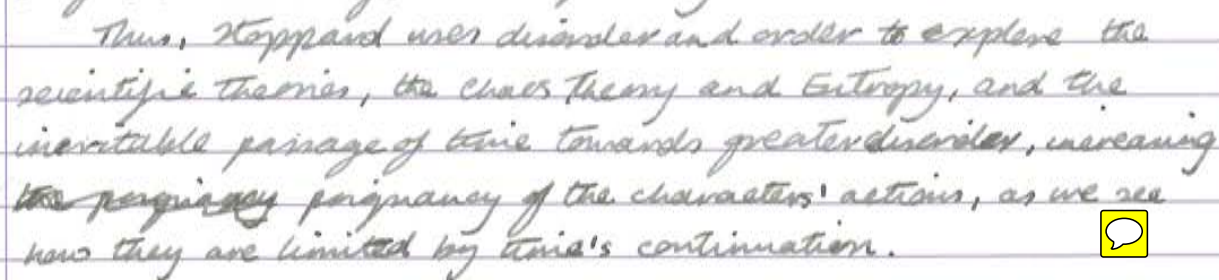 Thus, Stoppard uses disorder and order to explore the
scientific theories, the Chaos Theory and Entropy, and the
inevitable passage of time towards greater disorder, increasing
the poignancy poignancy of the characters' actions, as we see
how they are limited by time's continuation.